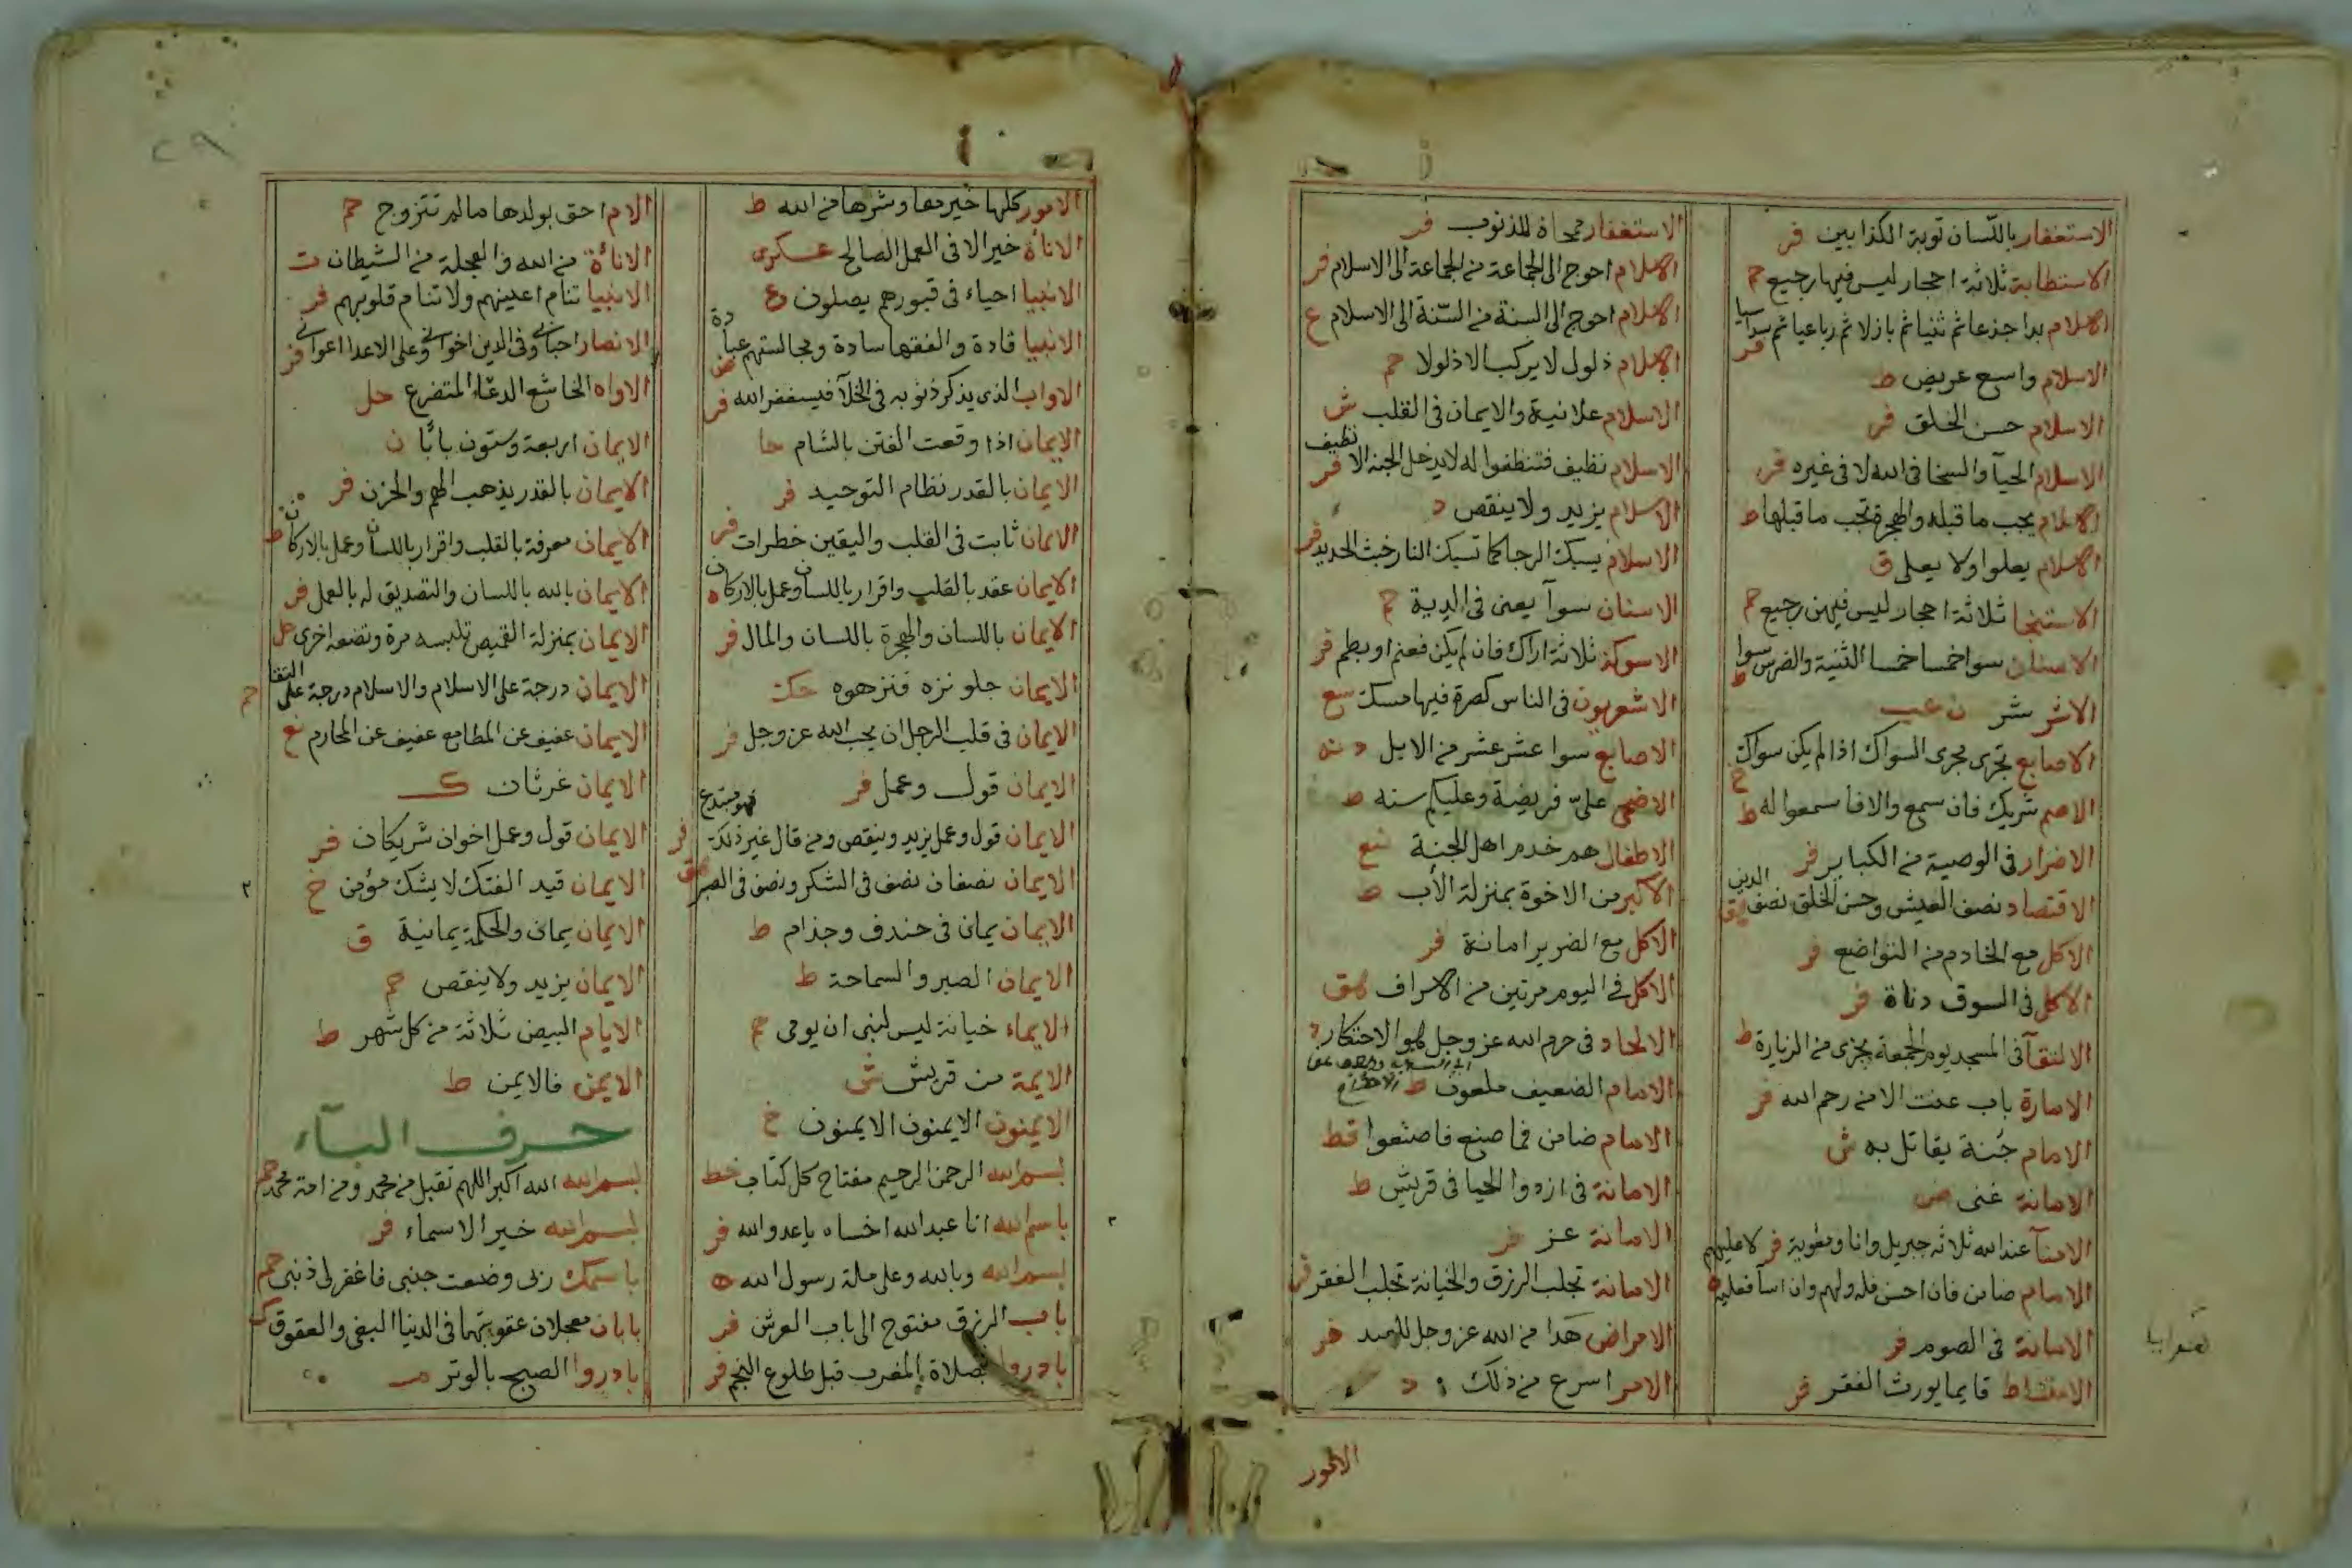 الاستغفار باللسان توبة الكذابين فر
الاستطابة ثلاثة احجار ليس فيها رجيع حم
الاسلام بدا جذعا ثم ثنيا ثم بازلا ثم رباعيا ثم سداسيا فر
الاسلام واسع عريض ط
الاسلام حسن الخلق فر
الاسلام الحيآ والسخا فى الله لا فى غيره فر
الاسلام يجب ما قبله والهجرة تجب ما قبلها ط
الاسلام يعلوا ولا يعلى ق
الاستنجا ثلاثة احجار ليس فيهن رجيع حم
الاسنان سوا خمسا خمسا الثنية والضرس سوا ط
الاشر شر ن عب
الاصابع تجزى مجرى السواك اذا لم يكن سواك ح
الاصم شريك فان سمع والا فا سمعوا له ط
الاضرار فى الوصية من الكباير فر
الاقتصاد نصف العيش وحسن الخلق نصف الدين هق
الاكل مع الخادم من التواضع فر
الاكل فى السوق دناة فر
الالتقآ فى المسجد يوم الجمعة يجزى من الزيارة ط
الامارة باب عنت الا من رحم الله فر
الامام جُنة يقاتل به ش
الامانة غنى ض
الامنآ عند الله ثلاثه جبريل وانا ومعوية فر
الامام ضامن فان احسن فله ولهم وان اسآ فعليه لا عليهم ه
الامانة فى الصوم فر
الامتشاط قايما يورث الفقر فر
الاستغفار ممحاة للذنوب فر
الاسلام احوج الى الجماعة من الجماعة الى الاسلام فر
الاسلام احوج الى السنة من السّنة الى الاسلام ع
الاسلام ذلول لا يركب الا ذلولا حم
الاسلام علانية والايمان فى القلب ش
الاسلام نظيف فتنظفوا له لا يدخل الجنة الا نظيف فر
الاسلام يزيد ولا ينقص د
الاسلام يسبك الرجا كما تسبك النار خبث الحديد فر
الاسنان سوآ يعنى فى الدية حم
الاسوكة ثلاثة اراك فان لم يكن فعنم او بطم فر
الاشعريون فى الناس كصرة فيها مسك سع
الاصابع سوا عشر عشر من الابل د نه
الاضحى علىّ فريضة وعليكم سنه ط
الاطفال هم خدم اهل الجنة نع
الاكبر من الاخوة بمنزلة الأب ط
الاكل مع الضرير امانة فر
الاكل فى اليوم مرتين من الاسراف هق
الالحاد فى حرم الله عز وجل هو الاحتكار د
الامام الضعيف ملعون ط
الامام ضامن فما صنع فاصنعوا قط
الامانة فى ازد والحيا فى قريش ط
الامانة عز فر
الامانة تجلب الرزق والخيانة تجلب الفقر فر
الامراض هدا من الله عز وجل للعبد فر
الامر اسرع من ذلك د
الامور
الامور كلها خيرها وشرها من الله ط
الاناة خير الا فى العمل الصالح عسكرى
الانبيا احياء فى قبورهم يصلون ع
الانبيا قادة والفقها سادة ومجالستهم عبادة قض
الاواب الذى يذكر ذنوبه فى الخلآ فيستغفر الله فر
الايمان اذا وقعت الفتن بالشام حا
الايمان بالقدر نظام التوحيد فر
الايمان ثابت فى القلب واليقين خطرات فر
الايمان عقد بالقلب واقرار باللسان وعمل بالاركان ه
الايمان باللسان والهجرة باللسان والمال فر
الايمان حلو نزه فنزهوه حك
الايمان فى قلب الرجل ان يحب الله عز وجل فر
الايمان قول وعمل فر
الايمان قول وعمل يزيد وينقص ومن قال غير ذلك فهو مبتدع فر
الايمان نصفان نصف فى الشكر ونصف فى الصبر هق
الايمان يمان فى خندف وجذام ط
الايمان الصبر والسماحة ط
الايماء خيانة ليس لنبى ان يومى حم
الايمة من قريش ش
الايمنون الايمنون الايمنون خ
بسم الله الرحمن الرحيم مفتاح كل كتاب خط
باسم الله انا عبد الله اخساه يا عدو الله فر
بسم الله وبالله وعلى ملة رسول الله ه
باب الرزق مفتوح الى باب العرش فر
بادروا بصلاة المغرب قبل طلوع النجم فر
الام احق بولدها ما لم تتزوج حم
الاناة من الله والعجلة من الشيطان ت
الانبيا تنام اعينهم ولا تنام قلوبهم فر
الانصار احبائى وفى الدين اخوانى وعلى الاعدا اعوانى فر
الاواه الخاشع الدعّاء المتضرع حل
الايمان اربعة وستون بابًا ن
الايمان بالقدر يذهب الهم والحزن فر
الايمان معرفة بالقلب واقرار باللسان وعمل بالاركان ط
الايمان بالله باللسان والتصديق له بالعمل فر
الايمان بمنزلة القميص تلبسه مرة وتضعه اخرى حل
الايمان درجة على الاسلام والاسلام درجة على التقا حم
الايمان عفيف عن المطامع عفيف عن المحارم نع
الايمان غرثان ك
الايمان قول وعمل اخوان شريكان فر
الايمان قيد الفتك لا يفتك مؤمن خ
الايمان يمان والحكمة يمانية ق
الايمان يزيد ولا ينقص حم
الايام البيض ثلاثة من كل شهر ط
الايمن فالايمن ط
حرف البآء
بسم الله الله اكبر اللهم تقبل من محمد ومن امة محمد حم
بسم الله خير الاسماء فر
باسمك ربى وضعت جنبى فاغفر لى ذنبى حم
بابان معجلان عقوبتهما فى الدنيا البغى والعقوق ك
بادروا الصبح بالوتر م